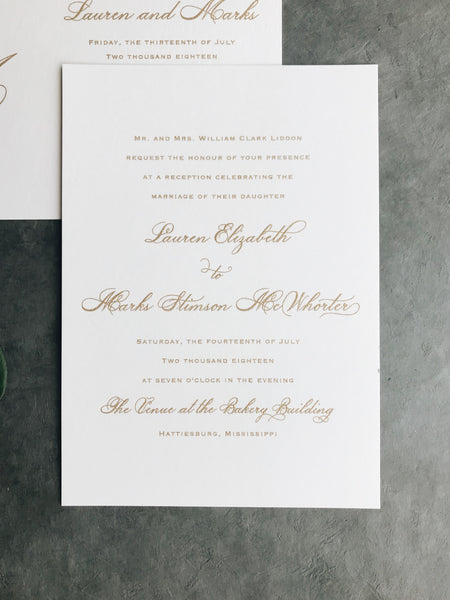 Lauren and Marks
Friday, the thirteenth of July
Two thousand eighteen
Mr. and Mrs. William Clark Liddon
request the honour of your presence
at a reception celebrating the
marriage of their daughter
Lauren Elizabeth
to
Marks Stimson McWhorter
Saturday, the fourteenth of July
Two thousand eighteen
at seven o'clock in the evening
The Venue at the Bakery Building
Hattiesburg, Mississippi